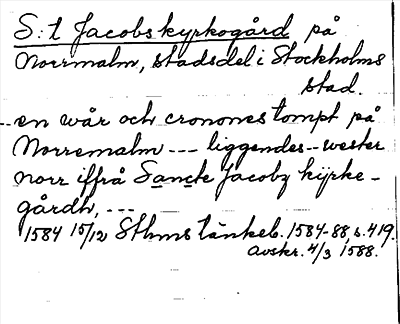 S:t Jacobs kyrkogård på
Norrmalm, stadsdel i Stockholms
stad.
-- en wår och cronones tompt på
Norremalm --- liggendes -- wester
norr iffrå Sancte Jacobz kyrke-
gårdh, ---
1584 15/12 Sthms tänkeb. 1584-88, s. 419.
avskr. 4/3 1588.